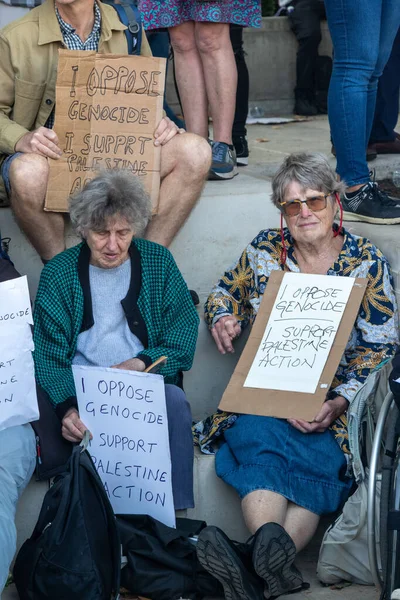 I OPPOSE
GENOCIDE
I SUPPRT
PALESTINE
I OPPOSE
GENOCIDE
I SUPPORT
PALESTINE
ACTION
I OPPOSE
GENOCIDE
I SUPPORT
PALESTINE
ACTION